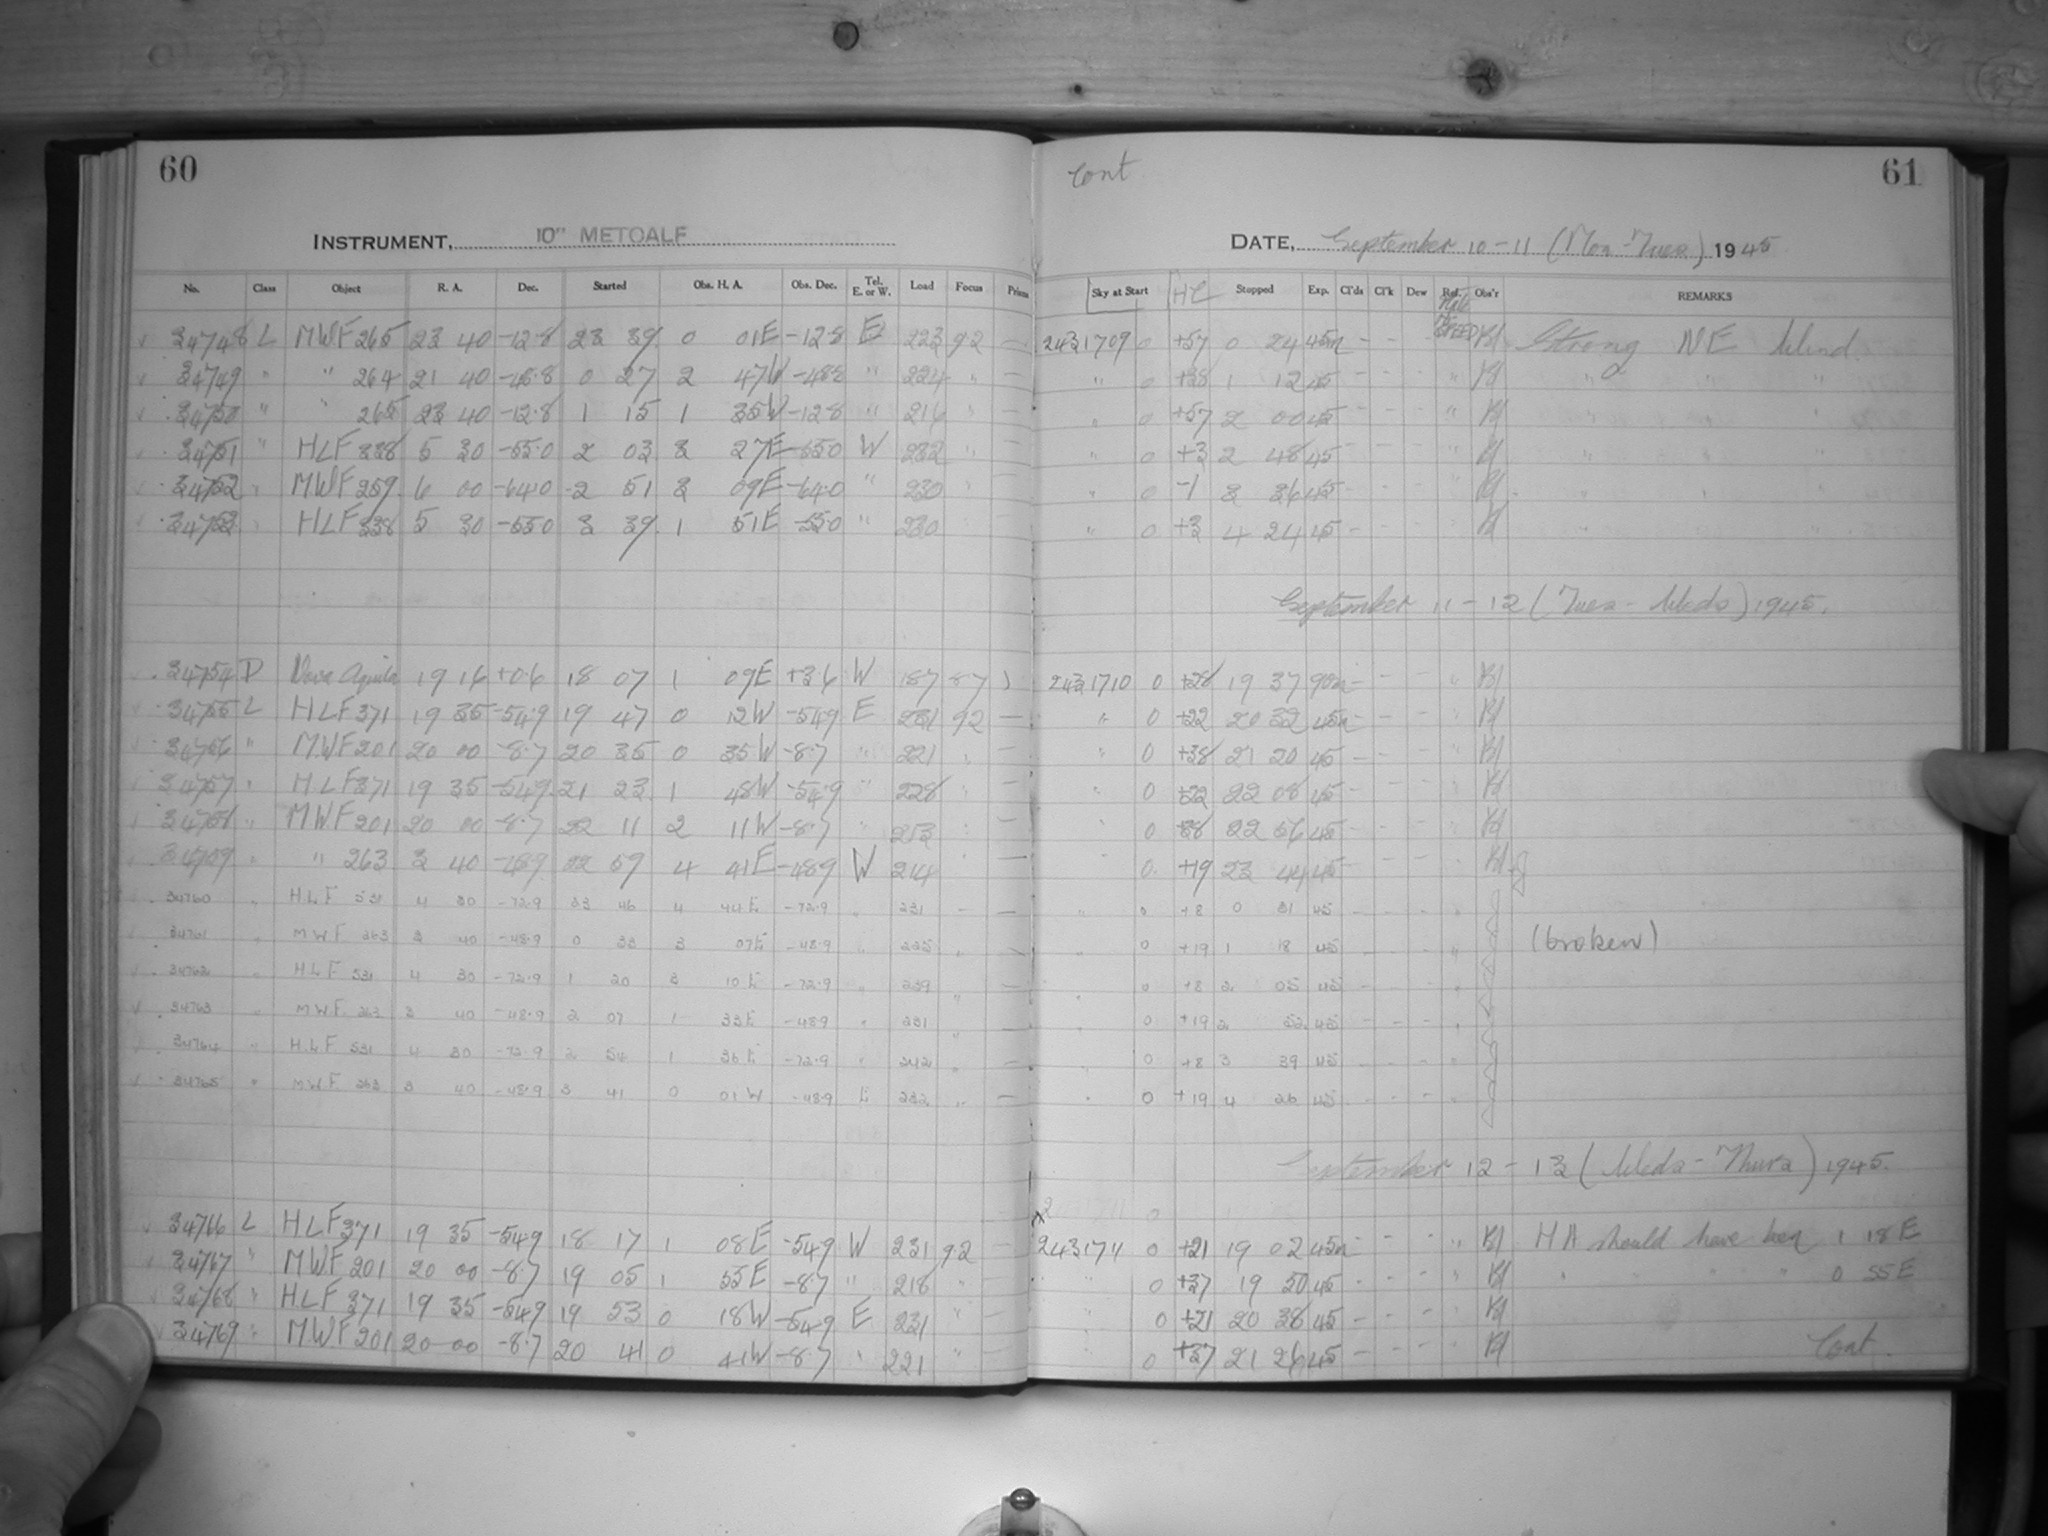 60
INSTRUMENT, 10" METCALF
No. Class Object R. A. Dec. Started Obs. H. A. Obs. Dec. Tel. E. or W. Load Focus Prism
34748 L MWF 265 23 40 -12.8 23 39 0 01E -12.8 E 223 92 —
34749 " " 264 21 40 -48.8 0 27 2 47W -48.8 " 224 " —
34750 " " 265 23 40 -12.8 1 15 1 35W -12.8 " 216 " —
34751 " HLF 338 5 30 -55.0 2 03 3 27E -55.0 W 232 "
34752 " MWF 259 6 00 -64.0 2 51 3 09E -64.0 " 230
34753 " HLF 338 5 30 -55.0 3 39 1 51E -55.0 " 230
34754 D Nova Aquila 19 16 +0.6 18 07 1 09E +3.6 W 187 8.7
34755 L HLF 371 19 35 -54.9 19 47 0 12W -54.9 E 231 92 —
34756 " MWF 201 20 00 -8.7 20 35 0 35W -8.7 " 221 " —
34757 " HLF 371 19 35 -54.9 21 23 1 48W -54.9 " 228 " —
34758 " MWF 201 20 00 -8.7 22 11 2 11W -8.7 " 213 " —
34759 " " 263 3 40 -48.9 22 59 4 41E -48.9 W 214 " —
34760 " HLF 531 4 30 -72.9 23 46 4 44E -72.9 " 231 - —
34761 " MWF 263 3 40 -48.9 0 33 3 07E -48.9 " 235 " —
34762 " HLF 531 4 30 -72.9 1 20 3 10E -72.9 " 239 " —
34763 " MWF 263 3 40 -48.9 2 07 1 33E -48.9 " 231 " —
34764 " HLF 531 4 30 -72.9 2 54 1 36E -72.9 " 242 " —
34765 " MWF 263 3 40 -48.9 3 41 0 01W -48.9 E 232 " —
34766 L HLF 371 19 35 -54.9 18 17 1 08E -54.9 W 231 92 —
34767 " MWF 201 20 00 -8.7 19 05 1 55E -8.7 " 218 " —
34768 " HLF 371 19 35 -54.9 19 53 0 18W -54.9 E 231 " —
34769 " MWF 201 20 00 -8.7 20 41 0 41W -8.7 " 221 " —
Cont 61
DATE, September 10-11 (Mon-Tues) 1945
Sky at Start HC Stopped Exp. Cl'ds Cl'k Dew Ref. Obs'r REMARKS
2431709 0 +57 0 24 45m - - - Bl Strong NE Wind
" 0 +38 1 12 45 - - - " Bl " " "
" 0 +57 2 00 45 - - - " Bl
" 0 +3 2 48 45 - - - " Bl " " "
" 0 -1 3 36 45 - - - " Bl " " "
" 0 +3 4 24 45 - - - Bl " " "
September 11-12 (Tues-Weds) 1945.
2431710 0 +28 19 37 90m - - - " Bl
" 0 +22 20 32 45m - - - " Bl
" 0 +38 21 20 45 - - - " Bl
" 0 +22 22 08 45 - - - " Bl
" 0 +38 22 56 45 - - - " Bl
" 0 +19 23 44 45 - - - " Bl
" 0 +8 0 31 45 - - - "
" 0 +19 1 18 45 - - - " (broken)
" 0 +8 2 05 45 - - - "
" 0 +19 2 52 45 - - - "
" 0 +8 3 39 45 - - - "
" 0 +19 4 26 45 - - - "
September 12-13 (Weds-Thurs) 1945.
2431711 0 +21 19 02 45m - - - " Bl HA should have been 1 18E
" 0 +37 19 50 45 - - - " Bl " " " " 0 55E
" 0 +21 20 38 45 - - - " Bl
0 +37 21 26 45 - - - " Bl Cont.